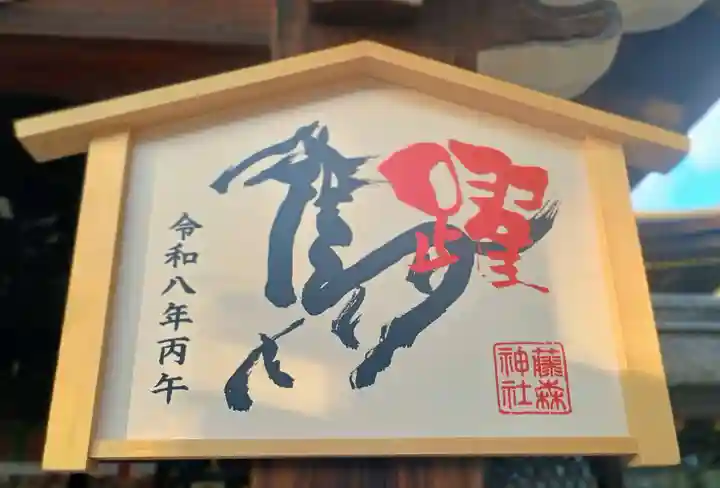 躍
令和八年丙午
藤森
神社